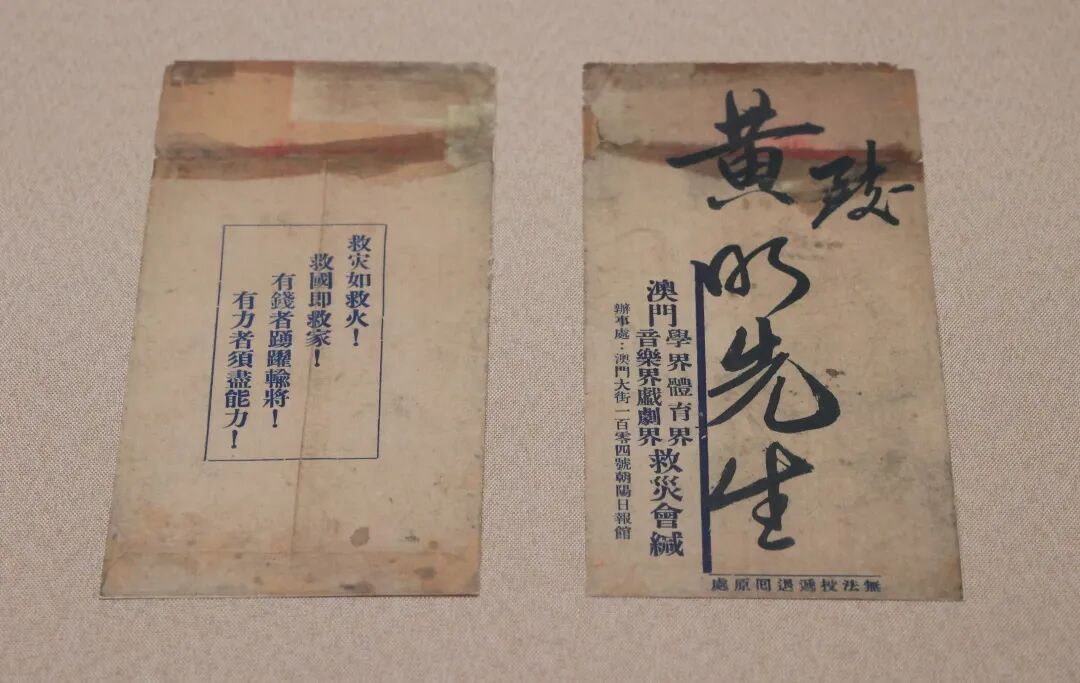 救灾如救火！
救國即救家！
有錢者踴躍輸將！
有力者須盡能力！
黃
明先生
澳門學界體育界
音樂界戲劇界救災會緘
辦事處：澳門大街一百零四號朝陽日報館
無法投遞退囘原處